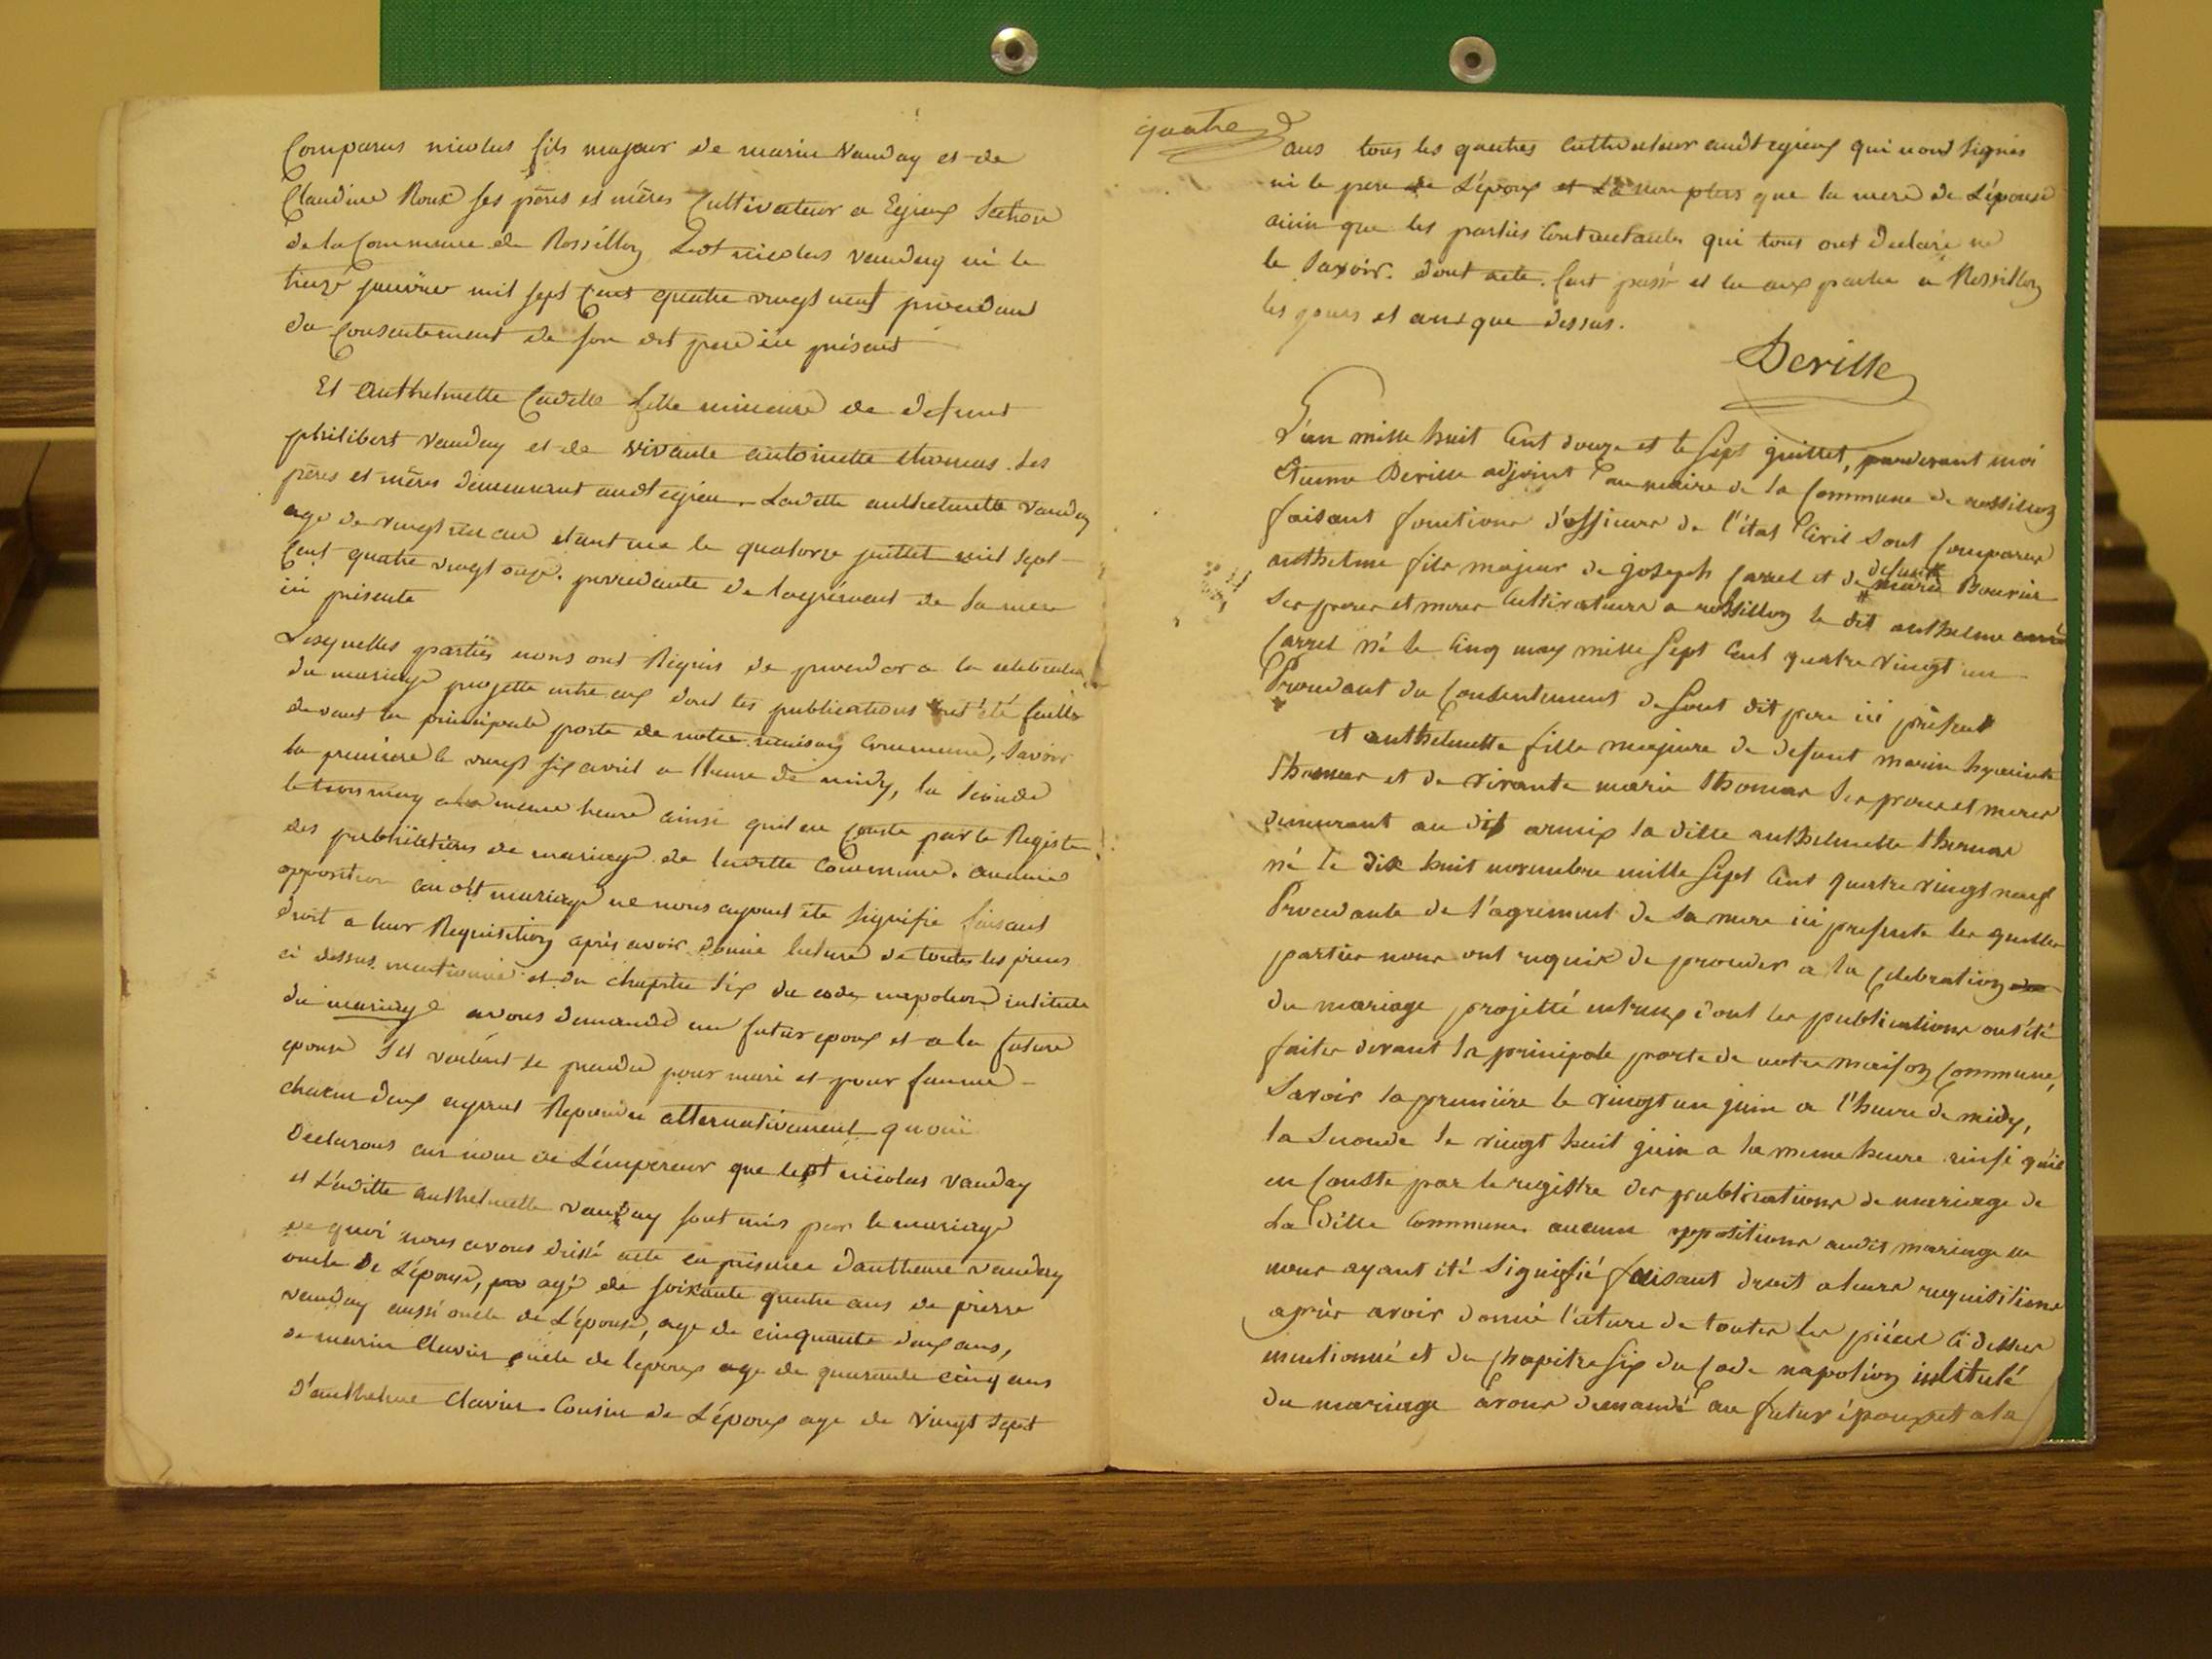 Comparus nicolas fils majeur de marin Vauday et de
Claudine Roux ses pères et mères Cultivateur a Egieux Section
de la Commune de Rossillon Ledt nicolas vauday né le
treize janvier mil sept Cent quatre vingt neuf procedant
du Consentement de son dit pere ici présent
Et Anthelmette fille mineure de defunt
philibert Vauday et de vivante antoinette thomas ses
pères et mères demeurant audt egieu. Ladette anthelmette Vauday
age de vingt un ans etant née le quatorze juillet mil sept
Cent quatre vingt onze. procedante de lagrément de sa mere
ici présente
Lesquelles parties nous ont Requis de proceder a la celebration
du mariage projetté entre eux dont les publications ont été faittes
devant la principale porte de notre maison Commune, Savoir
la premiere le vingt six avril a lheure de midy, la seconde
le trois may a la meme heure ainsi quil en Conste par le Registre
des publications de mariage de ladette Commune. aucune
opposition au dt mariage ne nous ayant été signifié faisant
droit a leur Requisition après avoir donné lecture de toutes les pieces
ci dessus mentionné et du chapitre six du code napoleon intitulé
du mariage avons demandé au futur epoux et a la future
epouse sils veulent se prendre pour mari et pour femme
chacun deux ayant Repondu alternativement quoui
Declarons au nom de L'empereur que ledt nicolas vauday
et Ladette anthelmette vauday sont unis par le mariage
de quoi nous avons dressé acte en présence danthelme vauday
oncle de L'épouse, agé de soixante quatre ans de pierre
vauday aussi oncle de L'épouse, age de cinquante deux ans,
de marin Clavier oncle de lepoux age de quarante cinq ans
d'anthelme Clavier Cousin de L'époux age de vingt sept
quatre
ans tous les quatres Cultivateur audt egieux qui nont signés
ni le pere de L'époux et La non plus que la mere de L'épouse
ainsi que les parties Contractantes qui tous ont declaré ne
le savoir. dont acte. fait passé et lu aux parties a Rossillon
les jours et an que dessus.
Deville
L'an mille huit Cent douze et le sept juillet, pardevant moi
Etienne Deville adjoint au maire de la Commune de rossillon
faisant fonctions d'officier de l'état Civil Sont Comparus
anthelme fils majeur de joseph Carrel et de defunte marie Bouvier
ses peres et meres Cultivateurs a rossillon le dit anthelme
Carrel né le Cinq may mille Sept Cent quatre vingt un
Procedant du Consentement de Sont dit pere ici présent
et anthelmette fille majeure de defunt marin hyacinte
Thomas et de vivante marie Thomas Ses peres et meres
demeurant au dit armix la ditte anthelmette thomas
né le dix huit novembre mille Sept Cent quatre vingt neuf
Procedante de l'agrement de Sa mere ici presente les quelles
parties nous ont requis de proceder a la Celebration
du mariage projetté entreux dont les publications ont été
faites devant la principale porte de notre maison Commune,
Savoir la premiére le vingt un juin a l'heure de midy,
la Seconde le vingt huit juin a la meme heure ainsi qu'il
en Conste par le registre des publications de mariage de
La ditte Commune. aucune oppositions audit mariage ne
nous ayant été Signifié faisant droit a leurs requisitions
aprés avoir donné l'ecture de toutes les piéces Ci dessus
mentionné et du Chapitre six du Code napoléon intitulé
du mariage avons demandé au futur époux et a la